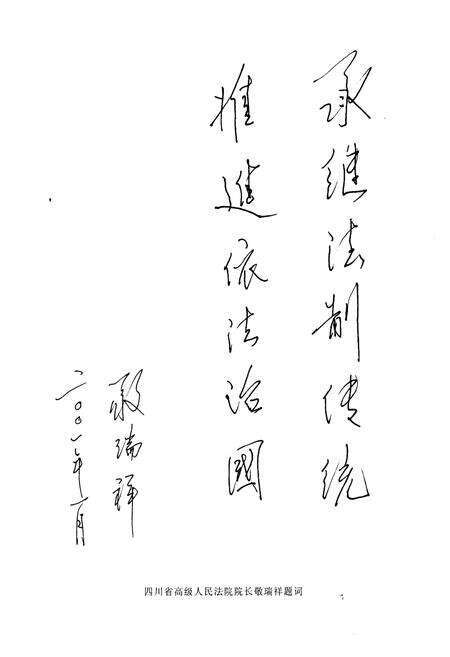 承继法制传统
推進依法治國
敬瑞祥
二〇〇一年一月
四川省高级人民法院院长敬瑞祥题词